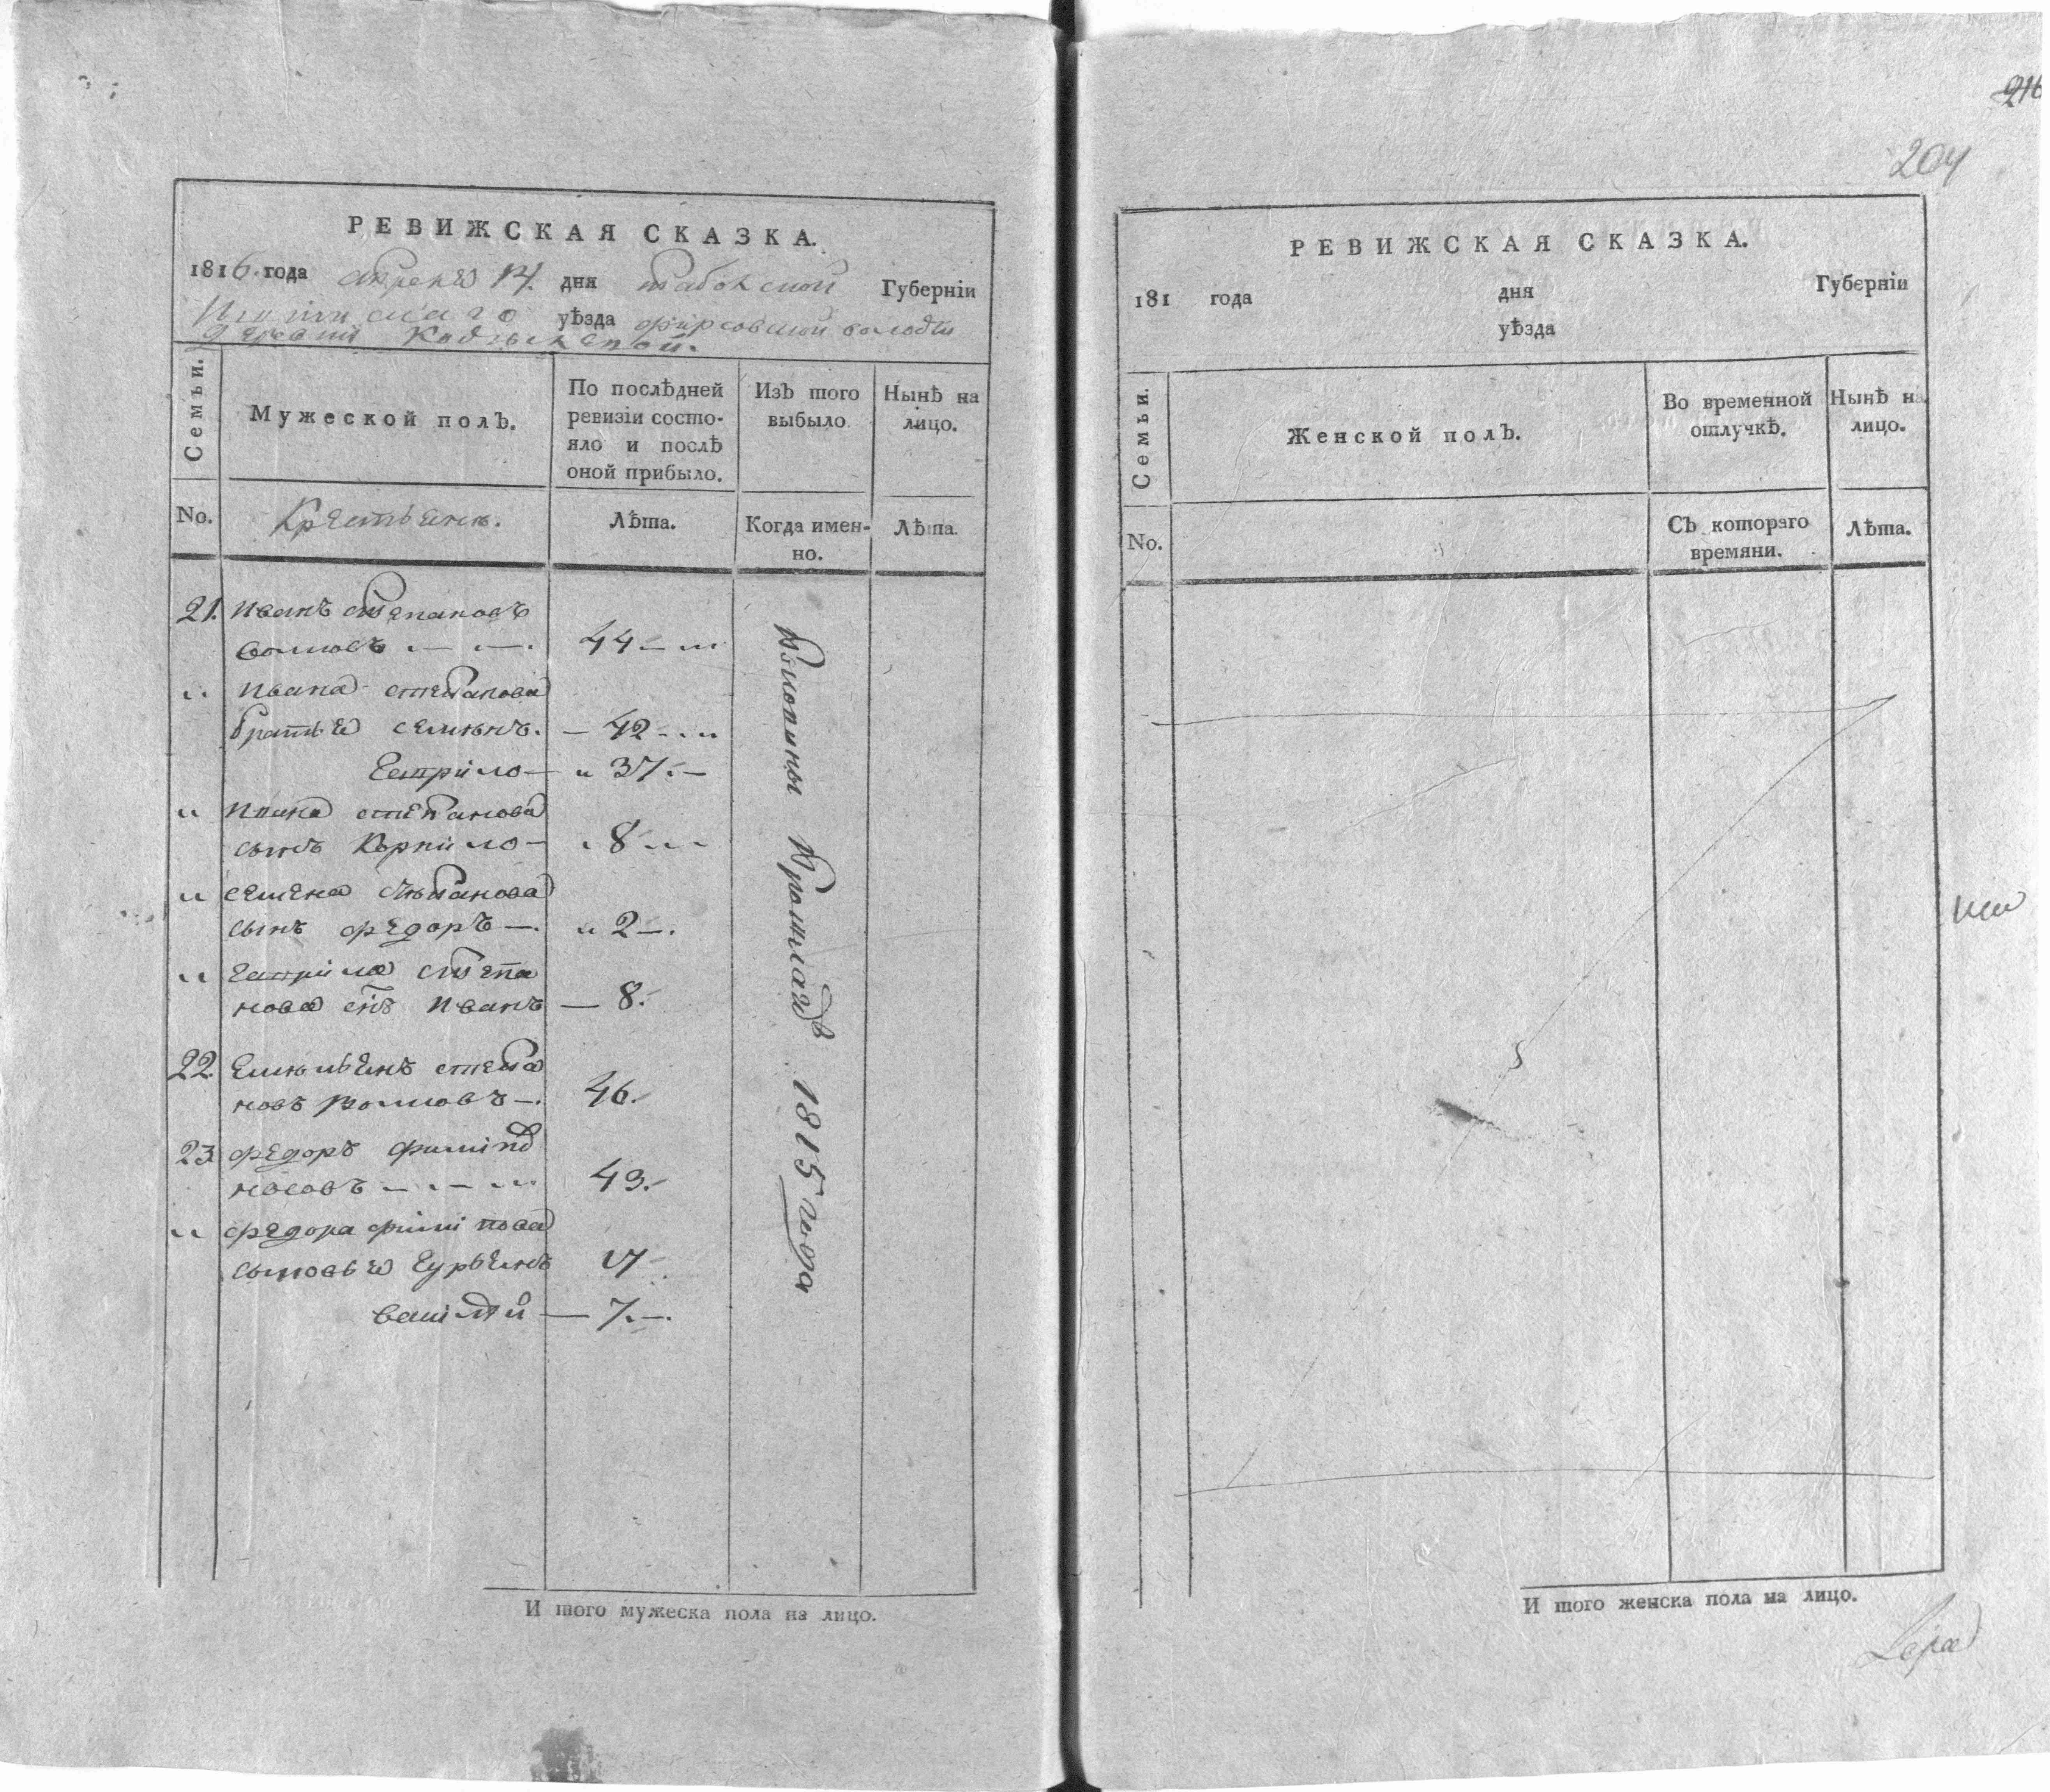 РЕВИЖСКАЯ СКАЗКА.
1816 года апреля 14 дня табольской Губерніи
Ишимскаго уѣзда фирсовской волости
деревни
Семьи.
Мужеской полъ.
По послѣдней ревизіи состо-
яло и послѣ
оной прибыло.
Изъ того
выбыло
Нынѣ на
лицо.
No.
Крестьяне.
Лѣта.
Когда имен-
но.
Лѣта.
21. иванъ степановъ
волковъ 44
ивана степанова
братья семионъ. 42
гаврило 37
ивана степанова
сынъ корнило 8
семена степанова
сынъ федоръ 2
гаврила степа
нова снъ иванъ 8
22. емельянъ степа
новъ волковъ 46
23. федоръ филипо
носовъ 43
федора филипова
сыновья гурьянъ 17
василей 7
1815 года
И того мужеска пола на лицо.
216
204
РЕВИЖСКАЯ СКАЗКА.
181 года дня Губерніи
уѣзда
Семьи.
Женской полъ.
Во временной
отлучкѣ.
Нынѣ на
лицо.
No.
Съ котораго
времяни.
Лѣта.
И того женска пола на лицо.